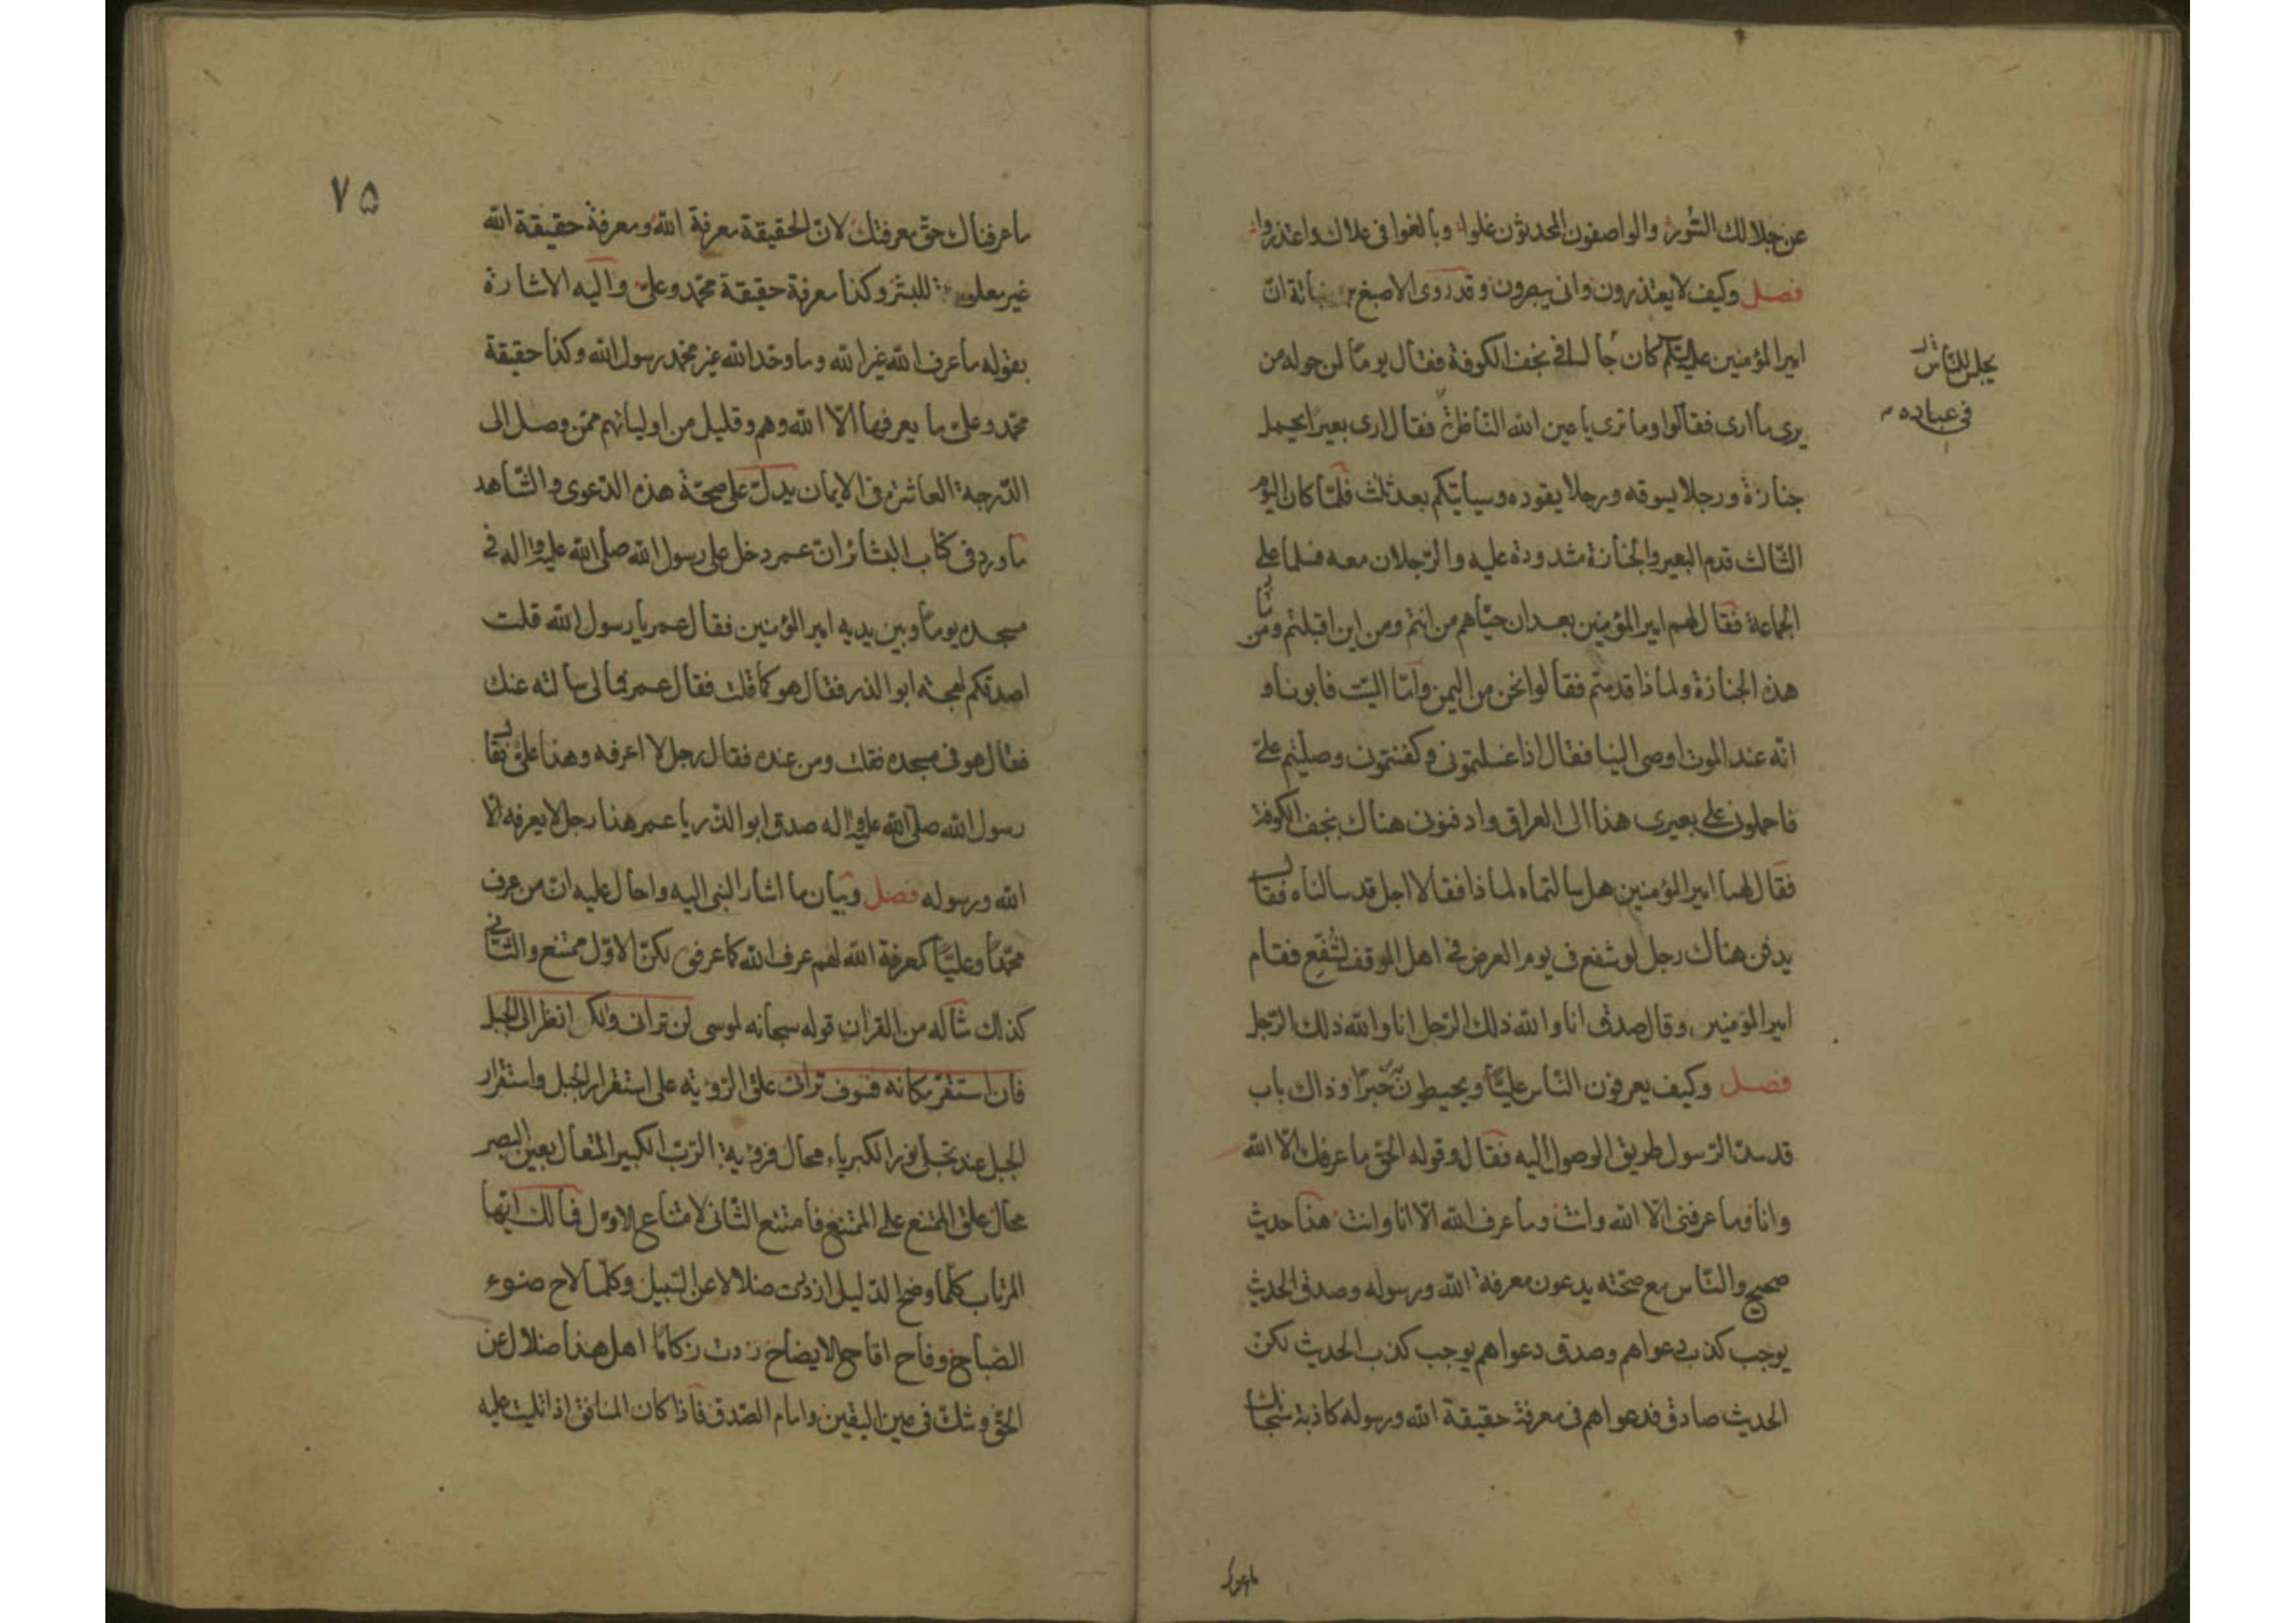 عن جلالك الستور والواصفون المحدثون غلوا وبالغوا فى علاك واعتذروا
فصل وكيف لا يعتذرون وانى يبصرون وقد روى الاصبغ بن نباتة ان
امير المؤمنين عليه السلم كان جالسا فى نجف الكوفة فقال يوما لمن حوله من
يرى ما ارى فقالوا وما ترى يا عين الله الناظرة فقال ارى بعيرا يحمل
جنازة ورجلا يسوقه ورجلا يقوده وسياتيكم بعد ثلث فلما كان اليوم
الثالث قدم البعير والجنازة مشدودة عليه والرجلان معه فسلما على
الجماعة فقال لهم امير المؤمنين بعد ان حياهم من انتم ومن اين اقبلتم ومن
هذه الجنازة ولماذا قدمتم فقالوا نحن من اليمن واما الميت فابونا و
انه عند الموت اوصى الينا فقال اذا غسلتمونى وكفنتمونى وصليتم على
فاحملونى على بعيرى هذا الى العراق وادفنونى هناك بنجف الكوفة
فقال لهما امير المؤمنين هل سالتماه لماذا فقالا اجل قد سالناه فقال
يدفن هناك رجل لو شفع فى يوم العرض فى اهل الموقف لشفع فقام
امير المؤمنين وقال صدق انا والله ذلك الرجل انا والله ذلك الرجل
فصل وكيف يعرفون الناس عليا ويحيطون خبرا وذاك باب
قد سد الرسول طريق الوصول اليه فقال وقوله الحق ما عرفك الا الله
وانا وما عرفنى الا الله وانت وما عرف الله الا انا وانت هذا حديث
صحيح والناس مع صحته يدعون معرفة الله ورسوله وصدق الحديث
يوجب كذب دعواهم وصدق دعواهم يوجب كذب الحديث لكن
الحديث صادق فدعواهم فى معرفة حقيقة الله ورسوله كاذبة سبحانك
يجلس للناس
۷۵
ما عرفناك حق معرفتك لان الحقيقة معرفة الله ومعرفة حقيقة الله
غير معلومة للبشر وكذا معرفة حقيقة محمد وعلى واليه الاشارة
بقوله ما عرف الله غير الله وما وحد الله غير محمد رسول الله وكذا حقيقة
محمد وعلى ما يعرفها الا الله وهم وقليل من اوليائهم ممن وصل الى
الدرجة العاشرة فى الايمان يدل على صحة هذه الدعوى والشاهد
ما ورد فى كتاب البشائر ان عمر دخل على رسول الله صلى الله عليه واله فى
مسجده يوما وبين يديه امير المؤمنين فقال عمر يا رسول الله قلت
اصدقكم لهجة ابو الذر فقال هو كما قلت فقال عمر فمالى سالته عنك
فقال هو فى مسجده فقلت ومن عنده فقال رجل لا اعرفه وهذا على فقال
رسول الله صلى الله عليه واله صدق ابو الذر يا عمر هذا رجل لا يعرفه الا
الله ورسوله فصل وبيان ما اشار النبى اليه واحال عليه ان من عرف
محمدا وعليا كمعرفة الله لهم عرف الله كما عرفوه لكن الاول ممتنع والثانى
كذلك مثاله من القران قوله سبحانه لموسى لن ترانى ولكن انظر الى الجبل
فان استقر مكانه فسوف ترانى علق الرؤية على استقرار الجبل واستقرار
الجبل عند تجلى نور الكبرياء محال فرؤية الرب الكبير المتعال بعين البصر
محال علق الممتنع على الممتنع فامتنع الثانى لامتناع الاول فمالك ايها
المرتاب كلما وضح الدليل ازددت ضلالا عن السبيل وكلما لاح ضوء
الصباح وفاح اقاح الايضاح زدت زكاما اهل هذا ضلال عن
الحق وشك فى عين اليقين وامام الصدق فاذا كان المنافق اذا تليت عليه